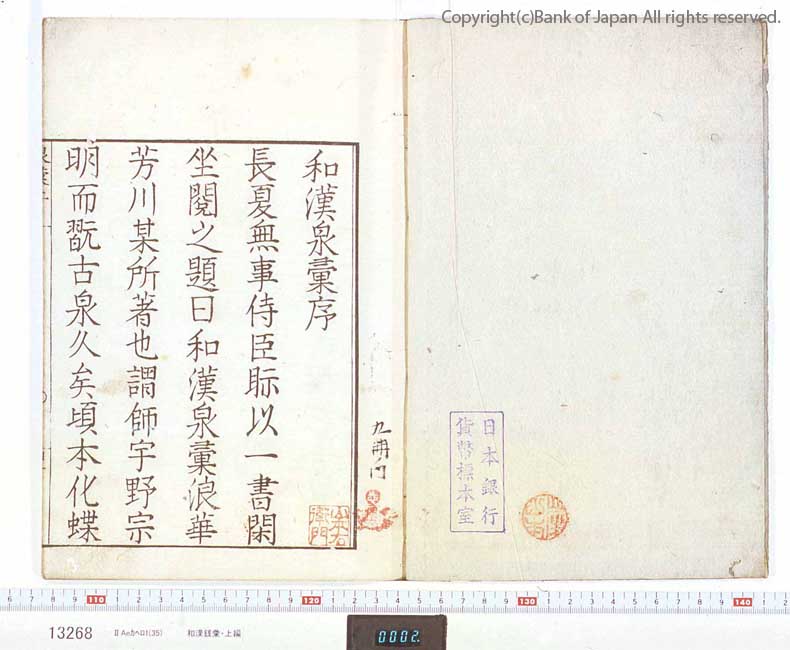 Copyright(c)Bank of Japan All rights reserved.
和漢泉彙序
長夏無事侍臣眎以一書閑
坐閲之題曰和漢泉彙浪華
芳川某所著也謂師宇野宗
明而翫古泉久矣頃本化蝶
九冊ノ内
日本銀行
貨幣標本室
6 7 8 9 110 1 2 3 4 5 6 7 8 9 120 1 2 3 4 5 6 7 8 9 130 1 2 3 4 5 6 7 8 9 140 1 2
13268
0002.
和漢銭彙・上編